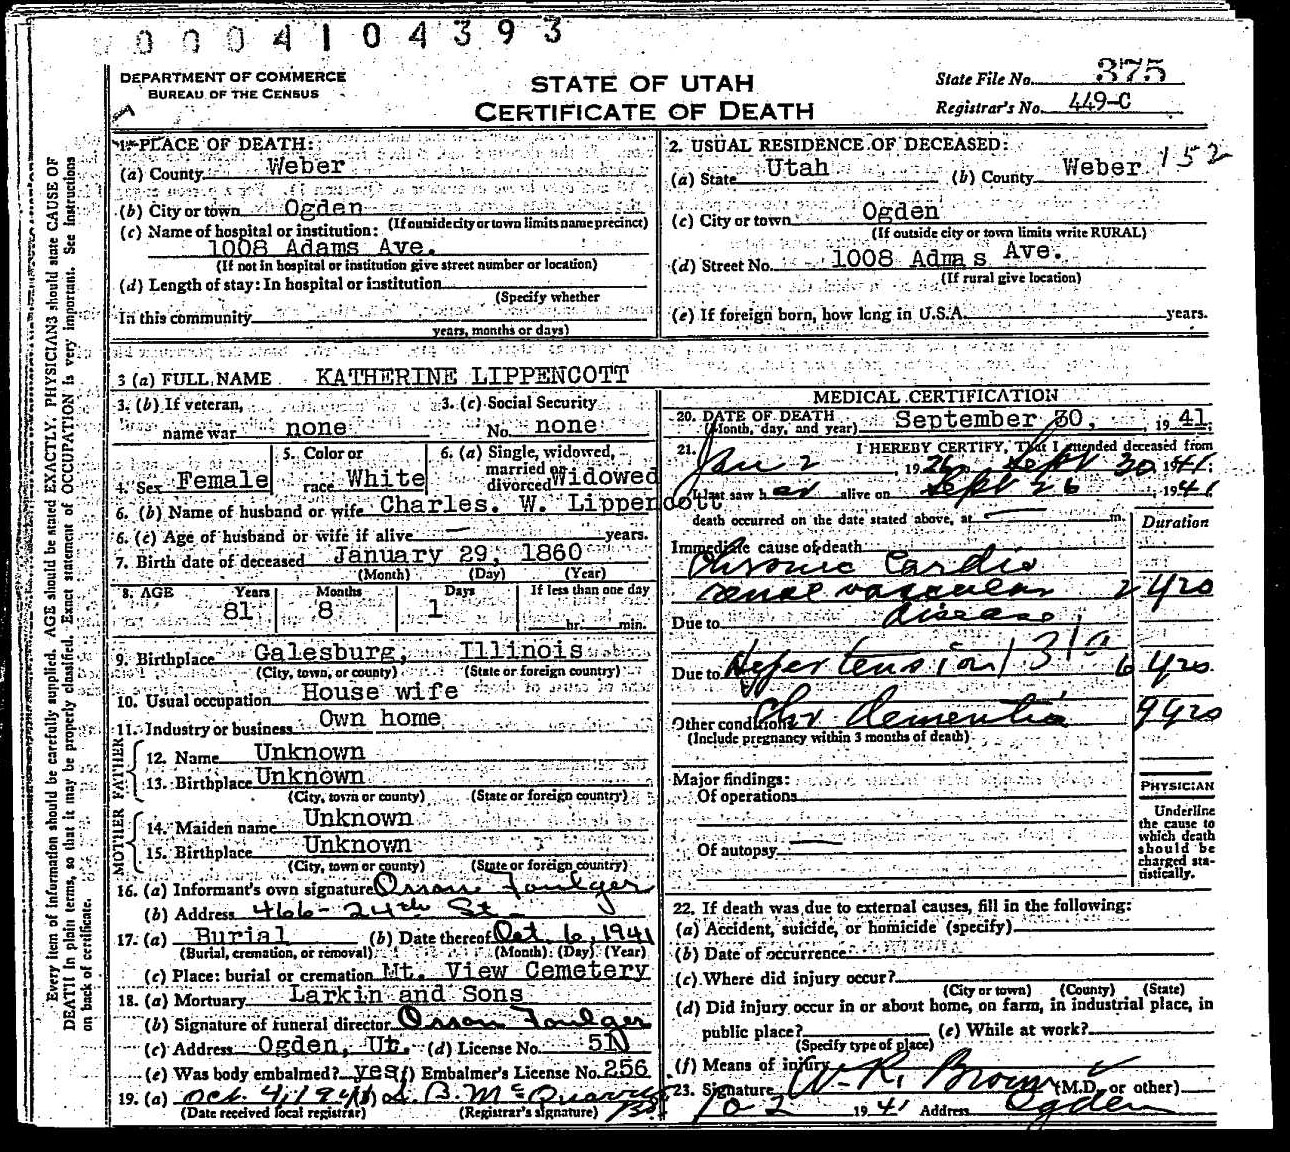 0004104393
DEPARTMENT OF COMMERCE
BUREAU OF THE CENSUS
STATE OF UTAH
CERTIFICATE OF DEATH
State File No. 375
Registrar's No. 449-C
1. PLACE OF DEATH:
(a) County Weber
(b) City or town Ogden
(If outside city or town limits name precinct)
(c) Name of hospital or institution:
1008 Adams Ave.
(If not in hospital or institution give street number or location)
(d) Length of stay: In hospital or institution
(Specify whether
In this community
years, months or days)
2. USUAL RESIDENCE OF DECEASED: 152
(a) State Utah (b) County Weber
(c) City or town Ogden
(If outside city or town limits write RURAL)
(d) Street No. 1008 Admas Ave.
(If rural give location)
(e) If foreign born, how long in U.S.A. years.
3 (a) FULL NAME KATHERINE LIPPENCOTT
3. (b) If veteran, 3. (c) Social Security
name war none No. none
4. Sex Female 5. Color or race White 6. (a) Single, widowed, married or divorced Widowed
6. (b) Name of husband or wife Charles. W. Lippencott
6. (c) Age of husband or wife if alive — years.
7. Birth date of deceased January 29, 1860
(Month) (Day) (Year)
8. AGE Years Months Days If less than one day
81 8 1 hr. min.
9. Birthplace Galesburg, Illinois
(City, town, or county) (State or foreign country)
10. Usual occupation House wife
11. Industry or business Own home
FATHER
12. Name Unknown
13. Birthplace Unknown
(City, town or county) (State or foreign country)
MOTHER
14. Maiden name Unknown
15. Birthplace Unknown
(City, town or county) (State or foreign country)
16. (a) Informant's own signature Orson Foulger
(b) Address 466-24th St.
17. (a) Burial (b) Date thereof Oct. 6, 1941
(Burial, cremation, or removal) (Month) (Day) (Year)
(c) Place: burial or cremation Mt. View Cemetery
18. (a) Mortuary Larkin and Sons
(b) Signature of funeral director Orson Foulger
(c) Address Ogden, Ut. (d) License No. 51
(e) Was body embalmed? yes (f) Embalmer's License No. 256
19. (a) Oct. 4, 1941 (b)
(Date received local registrar) (Registrar's signature)
MEDICAL CERTIFICATION
20. DATE OF DEATH September 30, 1941
(Month, day, and year)
21. I HEREBY CERTIFY, That I attended deceased from
Jan 2 , 19 Sept 30 1941;
I last saw her alive on Sept 26, 1941
death occurred on the date stated above, at — m.
Duration
Immediate cause of death
Chronic Cardio
renal vascular 2 yrs
Due to disease
Due to Hypertension 131a 6 yrs
Other conditions Chr dementia 9 yrs
(Include pregnancy within 3 months of death)
Major findings:
Of operations
Of autopsy —
PHYSICIAN
Underline
the cause to
which death
should be
charged sta-
tistically.
22. If death was due to external causes, fill in the following:
(a) Accident, suicide, or homicide (specify)
(b) Date of occurrence
(c) Where did injury occur?
(City or town) (County) (State)
(d) Did injury occur in or about home, on farm, in industrial place, in
public place? (e) While at work?
(Specify type of place)
(f) Means of injury
23. Signature W. R. Brown (M.D. or other)
10-2 1941 Address Ogden
Every item of information should be carefully supplied. AGE should be stated EXACTLY. PHYSICIANS should state CAUSE OF
DEATH in plain terms, so that it may be properly classified. Exact statement of OCCUPATION is very important. See instructions
on back of certificate.